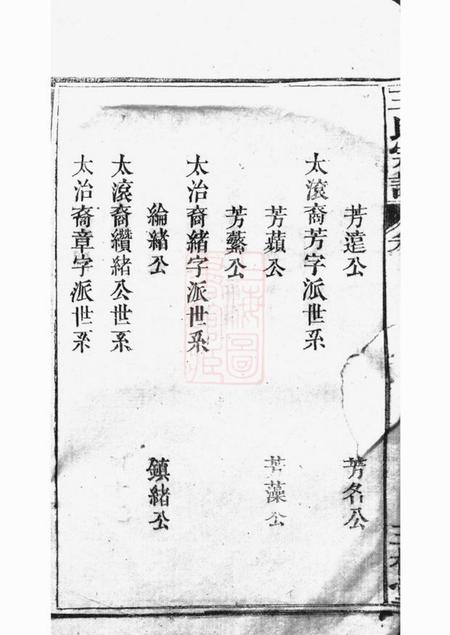 芳蓮公　芳名公
太滾裔芳字派世系
芳蘋公　芳藻公
芳藝公
太治裔緒字派世系
綸緒公　鎮緒公
太滾裔纘緒公世系
太治裔章字派世系